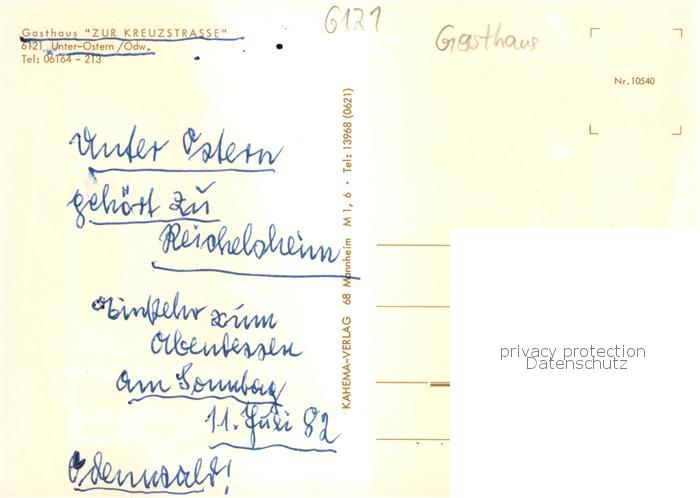 Gasthaus "ZUR KREUZSTRASSE"
6121 Unter-Ostern/Odw.
Tel: 06164 - 213
6121
Gasthaus
Nr. 10540
Unter Ostern
gehört zu
Reichelsheim
Einkehr zum
Abendessen
am Sonntag
11. Juli 82
Odenwald!
KAHEMA-VERLAG 68 Mannheim M 1, 6 • Tel: 13968 (0621)
privacy protection
Datenschutz